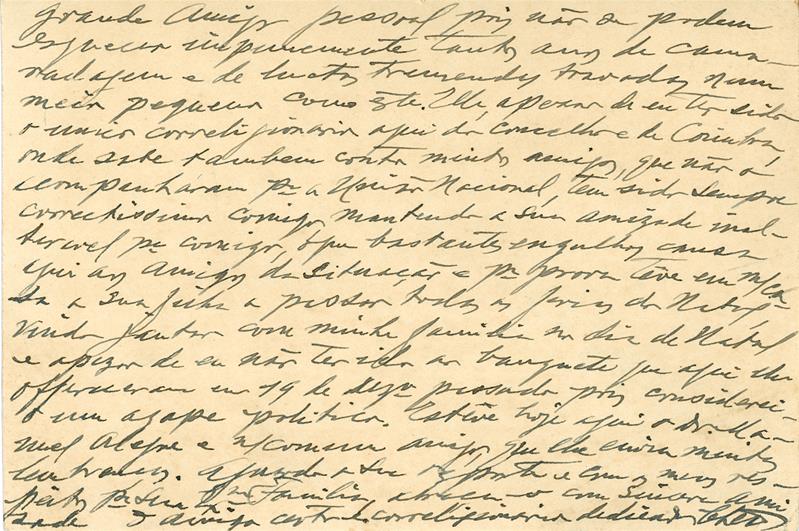 grande Amigo pessoal pois não se podem
esquecer impunemente tantos anos de cama-
radagem e de luctas tremendas travadas num
meio pequeno como este. Elle, apesar de eu ter sido
o unico correligionario aqui do concelho e de Coimbra,
onde este tambem conta muitos amigos, que não o
acompanharam pª a União Nacional, tem sido sempre
correctissimo comigo, mantendo a sua amizade inal-
teravel pª comigo, o que bastantes engulhos causa
aqui aos amigos da Situação e pª prova teve em m/ca
sa a sua filha a passar todas as ferias do Natal,
vindo jantar com minha familia no dia de Natal
e apezar de eu não ter ido ao banquete que aqui lhe
offereceram em 19 de dezº passado, pois considerei-
o um agape politico. Estêve hoje aqui o dr. Ma-
nuel Alegre e n/ comum amigo, que lhe envia muitos
Aguardo a sua resposta e com os meus res-
peitos pª sua Exma Familia, abraça-o com sincera ami
sade o amigo certo e correligionario dedicado